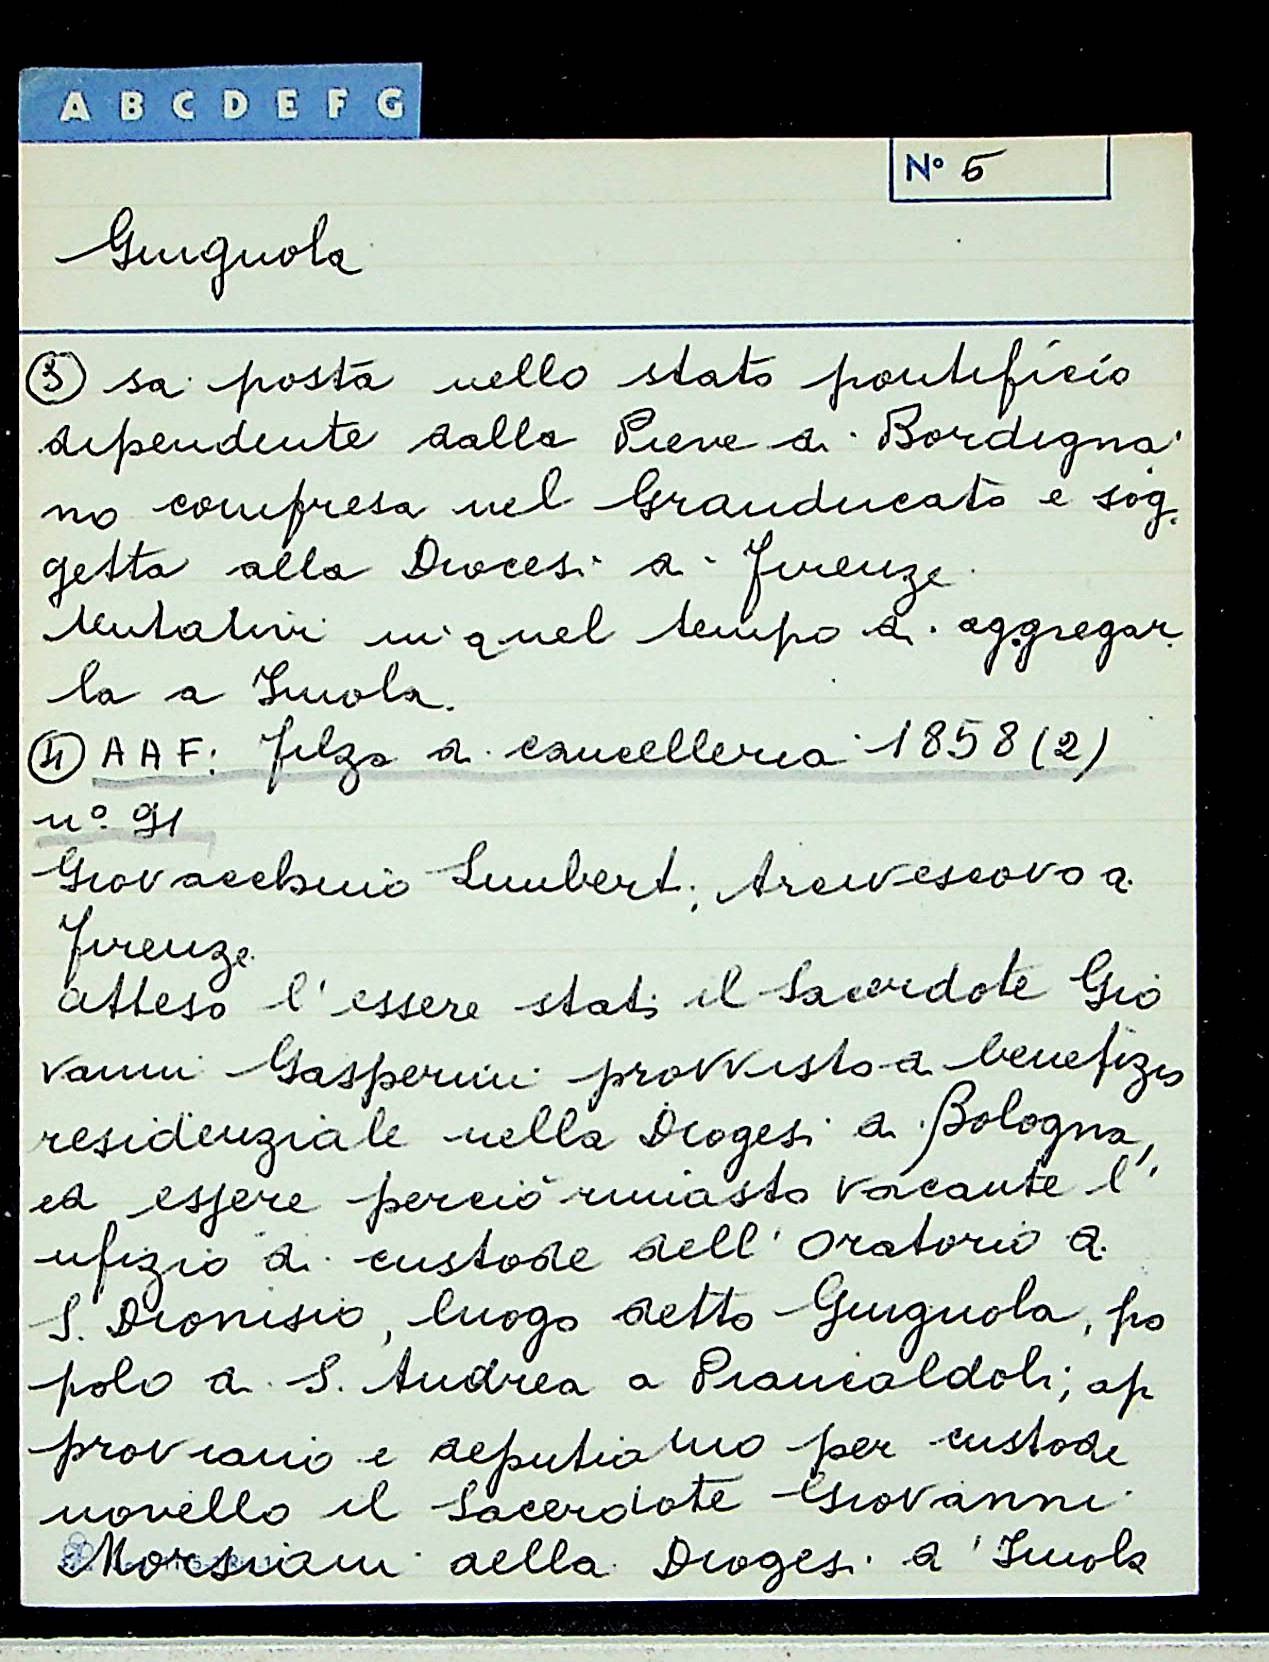 A B C D E F G
N° 5
Giugnola
③ sa posta nello stato pontificio
dipendente dalla Pieve di Bordigna
no compresa nel Granducato e sog
getta alla Diocesi di Firenze.
tentativi in quel tempo di aggregar
la a Imola.
④ AAF: filza di cancelleria 1858 (2)
n° 91
Giovacchino Limberti, Arcivescovo di
Firenze
atteso l'essere stato il Sacerdote Gio
vanni Gasperini provvisto di benefizio
residenziale nella Diogesi di Bologna,
ed essere perciò rimasto vacante l'
ufizio di custode dell'oratorio di
S. Dionisio, luogo detto Giugnola, po
polo di S. Andrea a Piancaldoli; ap
proviamo e deputiamo per custode
novello il Sacerdote Giovanni
Morsiani della Diogesi d'Imola